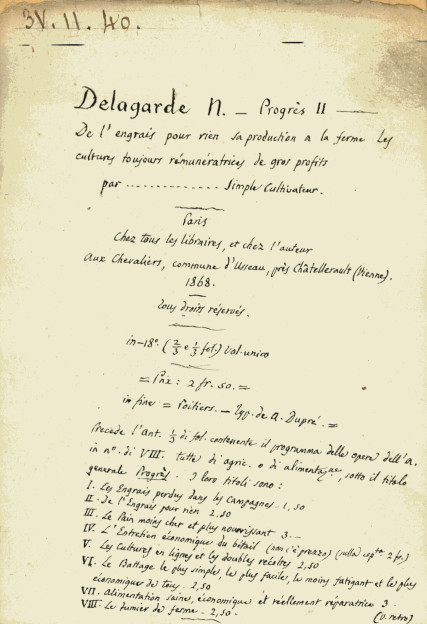 3V. 11. 40.
Delagarde N. — Progrès II —
De l'engrais pour rien sa production à la ferme Les
cultures toujours rémunératrices de gros profits
par .............. Simple Cultivateur.
Paris
Chez tous les libraires, et chez l'auteur
Aux Chevaliers, commune d'Usseau, près Châtellerault (Vienne).
1868.
Tous droits réservés.
in-18°. (2/3 e 1/3 fol.) Vol. unico
= Prix : 2 fr. 50. =
in fine = Poitiers. — Typ. de A. Dupré. =
Precede l'Ant. 1/3 di fol. contenente il programma delle opere dell'A.
in n° di VIII. tutte di agric. o di alimentazne, sotto il titolo
generale Progrès. I loro titoli sono :
I. Les Engrais perdus dans les Campagnes 1,50
II. De l'Engrais pour rien 2,50
III. Le Pain moins cher et plus nourrissant 3 —
IV. L'Entretien économique du bétail (non c'è prezzo) (sulla cop.ta 2 fr.)
V. Les Cultures en lignes et les doubles récoltes 2,50
VI. Le Battage le plus simple, le plus facile, le moins fatigant et le plus
économiques de tous. 2,50
VII. Alimentation saine, économique et réellement réparatrice 3 -
VIII. Le fumier de ferme — 2,50.
(V. retro)